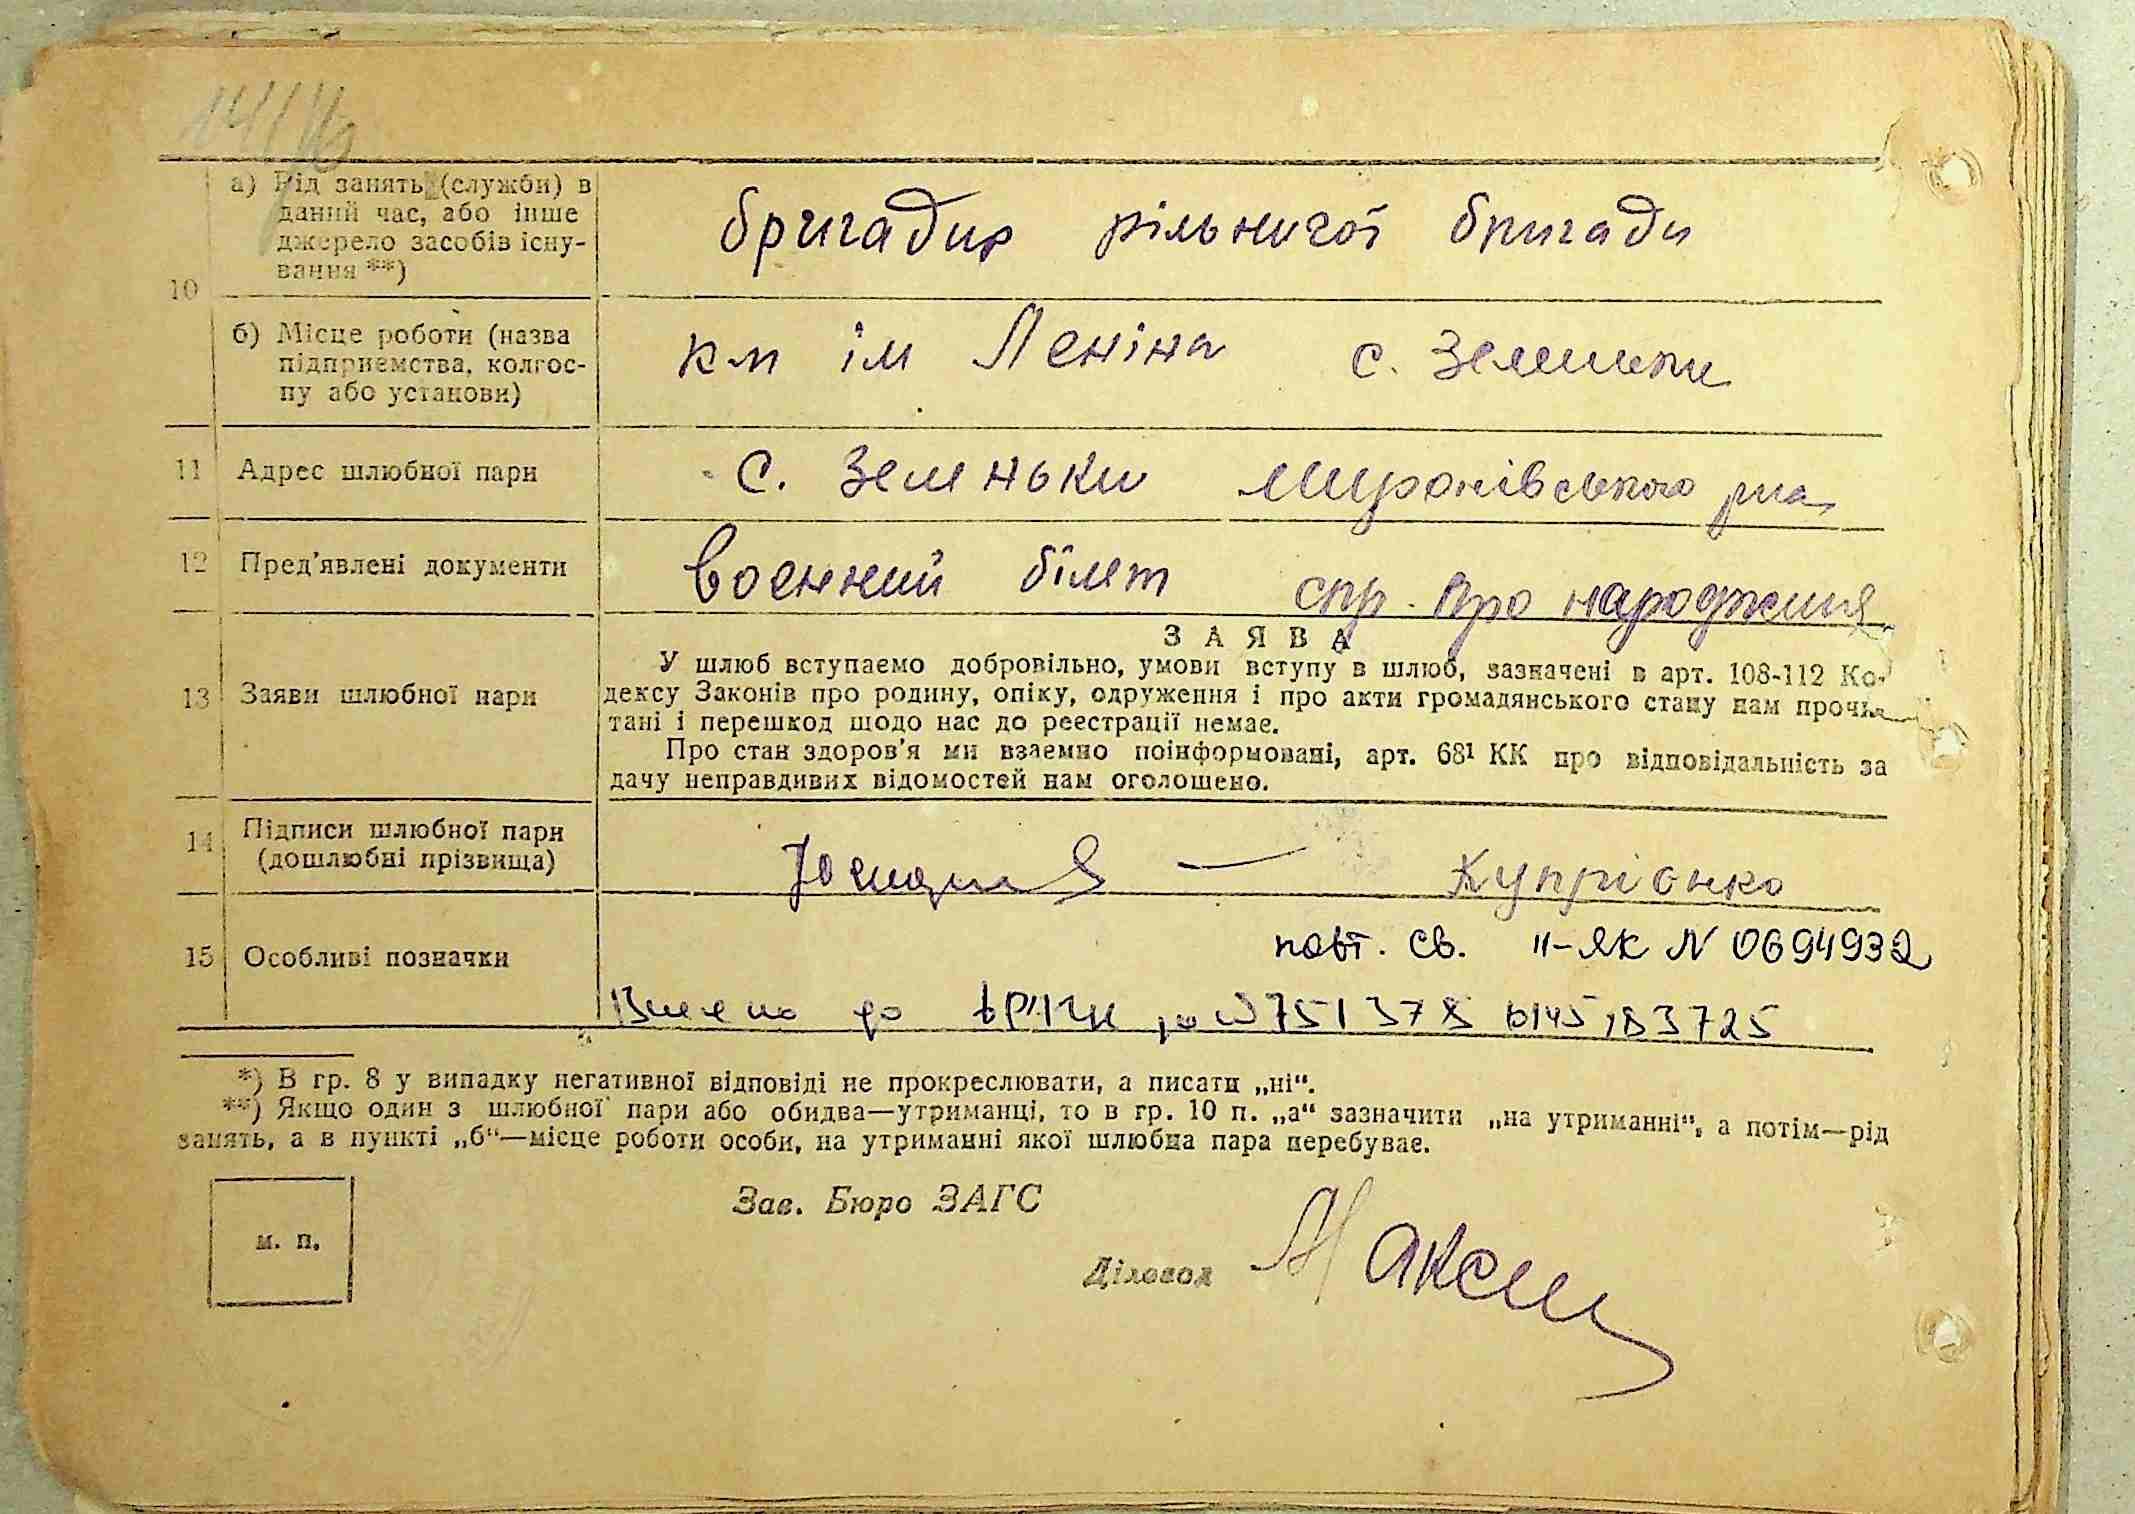 14/16
а) Рід занять (служби) в
даний час, або інше
джерело засобів існу-
вання **)
бригадир рільничої бригади
10
б) Місце роботи (назва
підприємства, колгос-
пу або установи)
км ім Леніна с. Зеленьки
11 Адрес шлюбної пари
с. Зеленьки Миронівського р-на
12 Пред'явлені документи
воєнний білет спр. про народження
13 Заяви шлюбної пари
ЗАЯВА
У шлюб вступаємо добровільно, умови вступу в шлюб, зазначені в арт. 108-112 Ко-
дексу Законів про родину, опіку, одруження і про акти громадянського стану нам прочи-
тані і перешкод щодо нас до реєстрації немає.
Про стан здоров'я ми взаємно поінформовані, арт. 68¹ КК про відповідальність за
дачу неправдивих відомостей нам оголошено.
14 Підписи шлюбної пари
(дошлюбні прізвища)
— Купріонко
15 Особливі позначки
повт. св. II-ЯК N 0694932
до 183725
*) В гр. 8 у випадку негативної відповіді не прокреслювати, а писати „ні“.
**) Якщо один з шлюбної пари або обидва—утриманці, то в гр. 10 п. „а“ зазначити „на утриманні“, а потім—рід
занять, а в пункті „б“—місце роботи особи, на утриманні якої шлюбна пара перебуває.
м. п.
Зав. Бюро ЗАГС
Діловод Максим